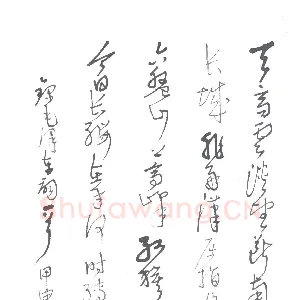 天高云淡望断南
长城非好汉屈指行
六盘山上高峰红旗
今日长缨在手何时缚
录毛泽东词一首甲申
Shufawang.CN